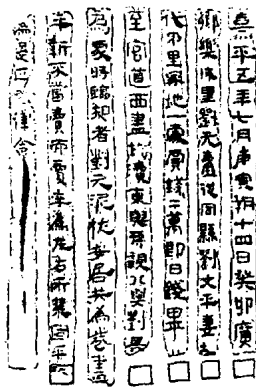 熹平五年七月庚寅朔十四日癸卯廣□
鄉樂成里劉元臺從同縣劉文平妻□
代夷里冢地一處賈錢二萬即日錢畢□
至官道西盡墳瀆東與房親北與劉景□
為冢時臨知者劉元泥枕安居共為券書□
平折不當賣而賣辛為左右所禁固平□
為是正如律令